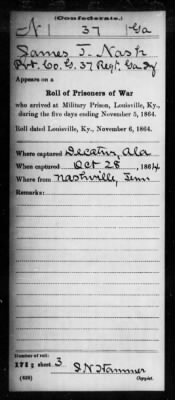 (Confederate.)
N 1 37 Ga
James J. Nash
Pvt. Co. G. 37 Regt. Ga
Appears on a
Roll of Prisoners of War
who arrived at Military Prison, Louisville, Ky.,
during the five days ending November 5, 1864.
Roll dated Louisville, Ky., November 6, 1864.
Where captured Decatur, Ala
When captured Oct 28, 1864
Where from Nashville, Tenn
Remarks:
Number of roll:
sheet 3
(639) Copyist.